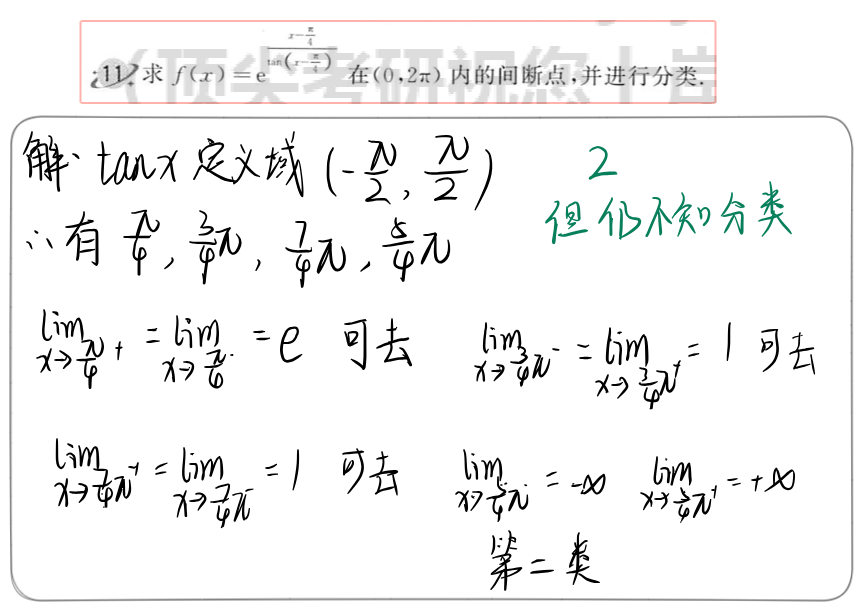 11. 求 f(x)=e^{\frac{x-\frac{π}{4}}{\tan(x-\frac{π}{4})}} 在(0,2π) 内的间断点,并进行分类.
解: tanx 定义域 (-\frac{π}{2}, \frac{π}{2})
2
但仍不知分类
∴有 \frac{π}{4}, \frac{3}{4}π, \frac{7}{4}π, \frac{5}{4}π
lim_{x→\frac{π}{4}^+} = lim_{x→\frac{π}{4}^-} = e 可去
lim_{x→\frac{3}{4}π^-} = lim_{x→\frac{3}{4}π^+} = 1 可去
lim_{x→\frac{7}{4}π^+} = lim_{x→\frac{7}{4}π^-} = 1 可去
lim_{x→\frac{5}{4}π^-} = -∞ lim_{x→\frac{5}{4}π^+} = +∞
第二类